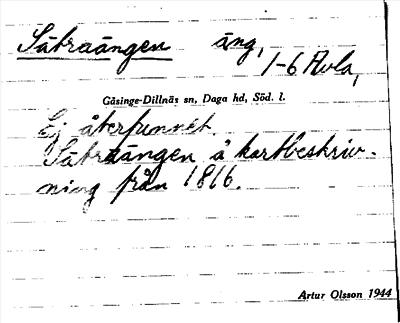 Sätraängen äng,
1-6 Avla,
Gåsinge-Dillnäs sn, Daga hd, Söd. l.
Ej återfunnet.
Sätraängen å kartbeskriv-
ning från 1816.
Artur Olsson 1944